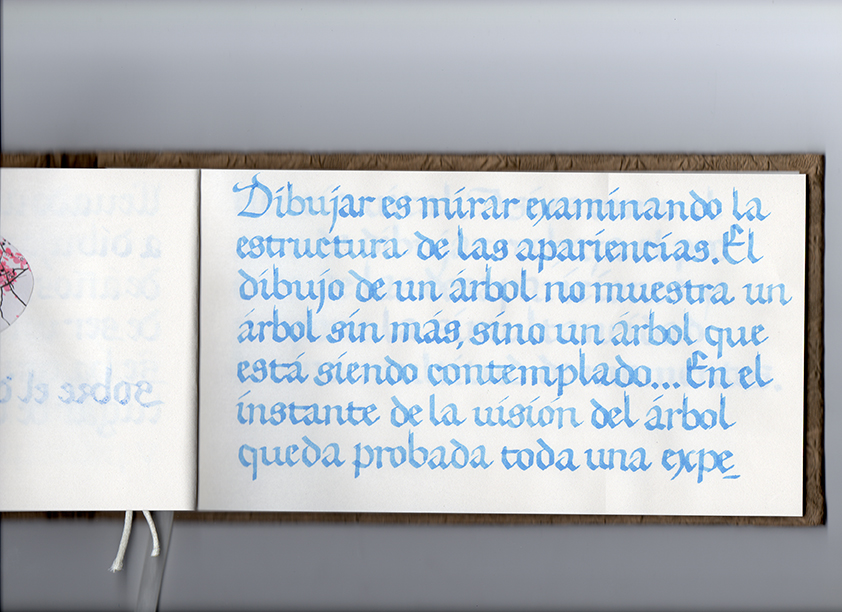 Dibujar es mirar examinando la
estructura de las apariencias. El
dibujo de un árbol no muestra un
árbol sin más, sino un árbol que
está siendo contemplado... En el
instante de la visión del árbol
queda probada toda una expe_